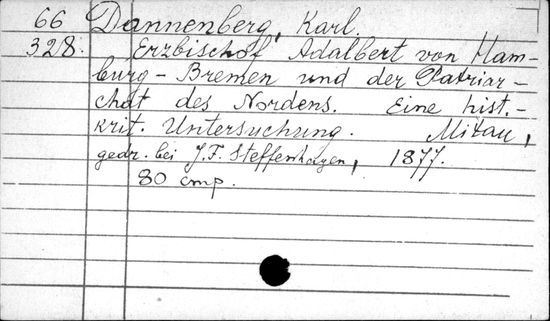 66 Dannenberg, Karl.
328. Erzbischof Adalbert von Ham-
burg-Bremen und der Patriar-
chat des Nordens. Eine hist.-
krit. Untersuchung. Mitau,
gedr. bei J.F. Steffenhagen, 1877.
80 стр.